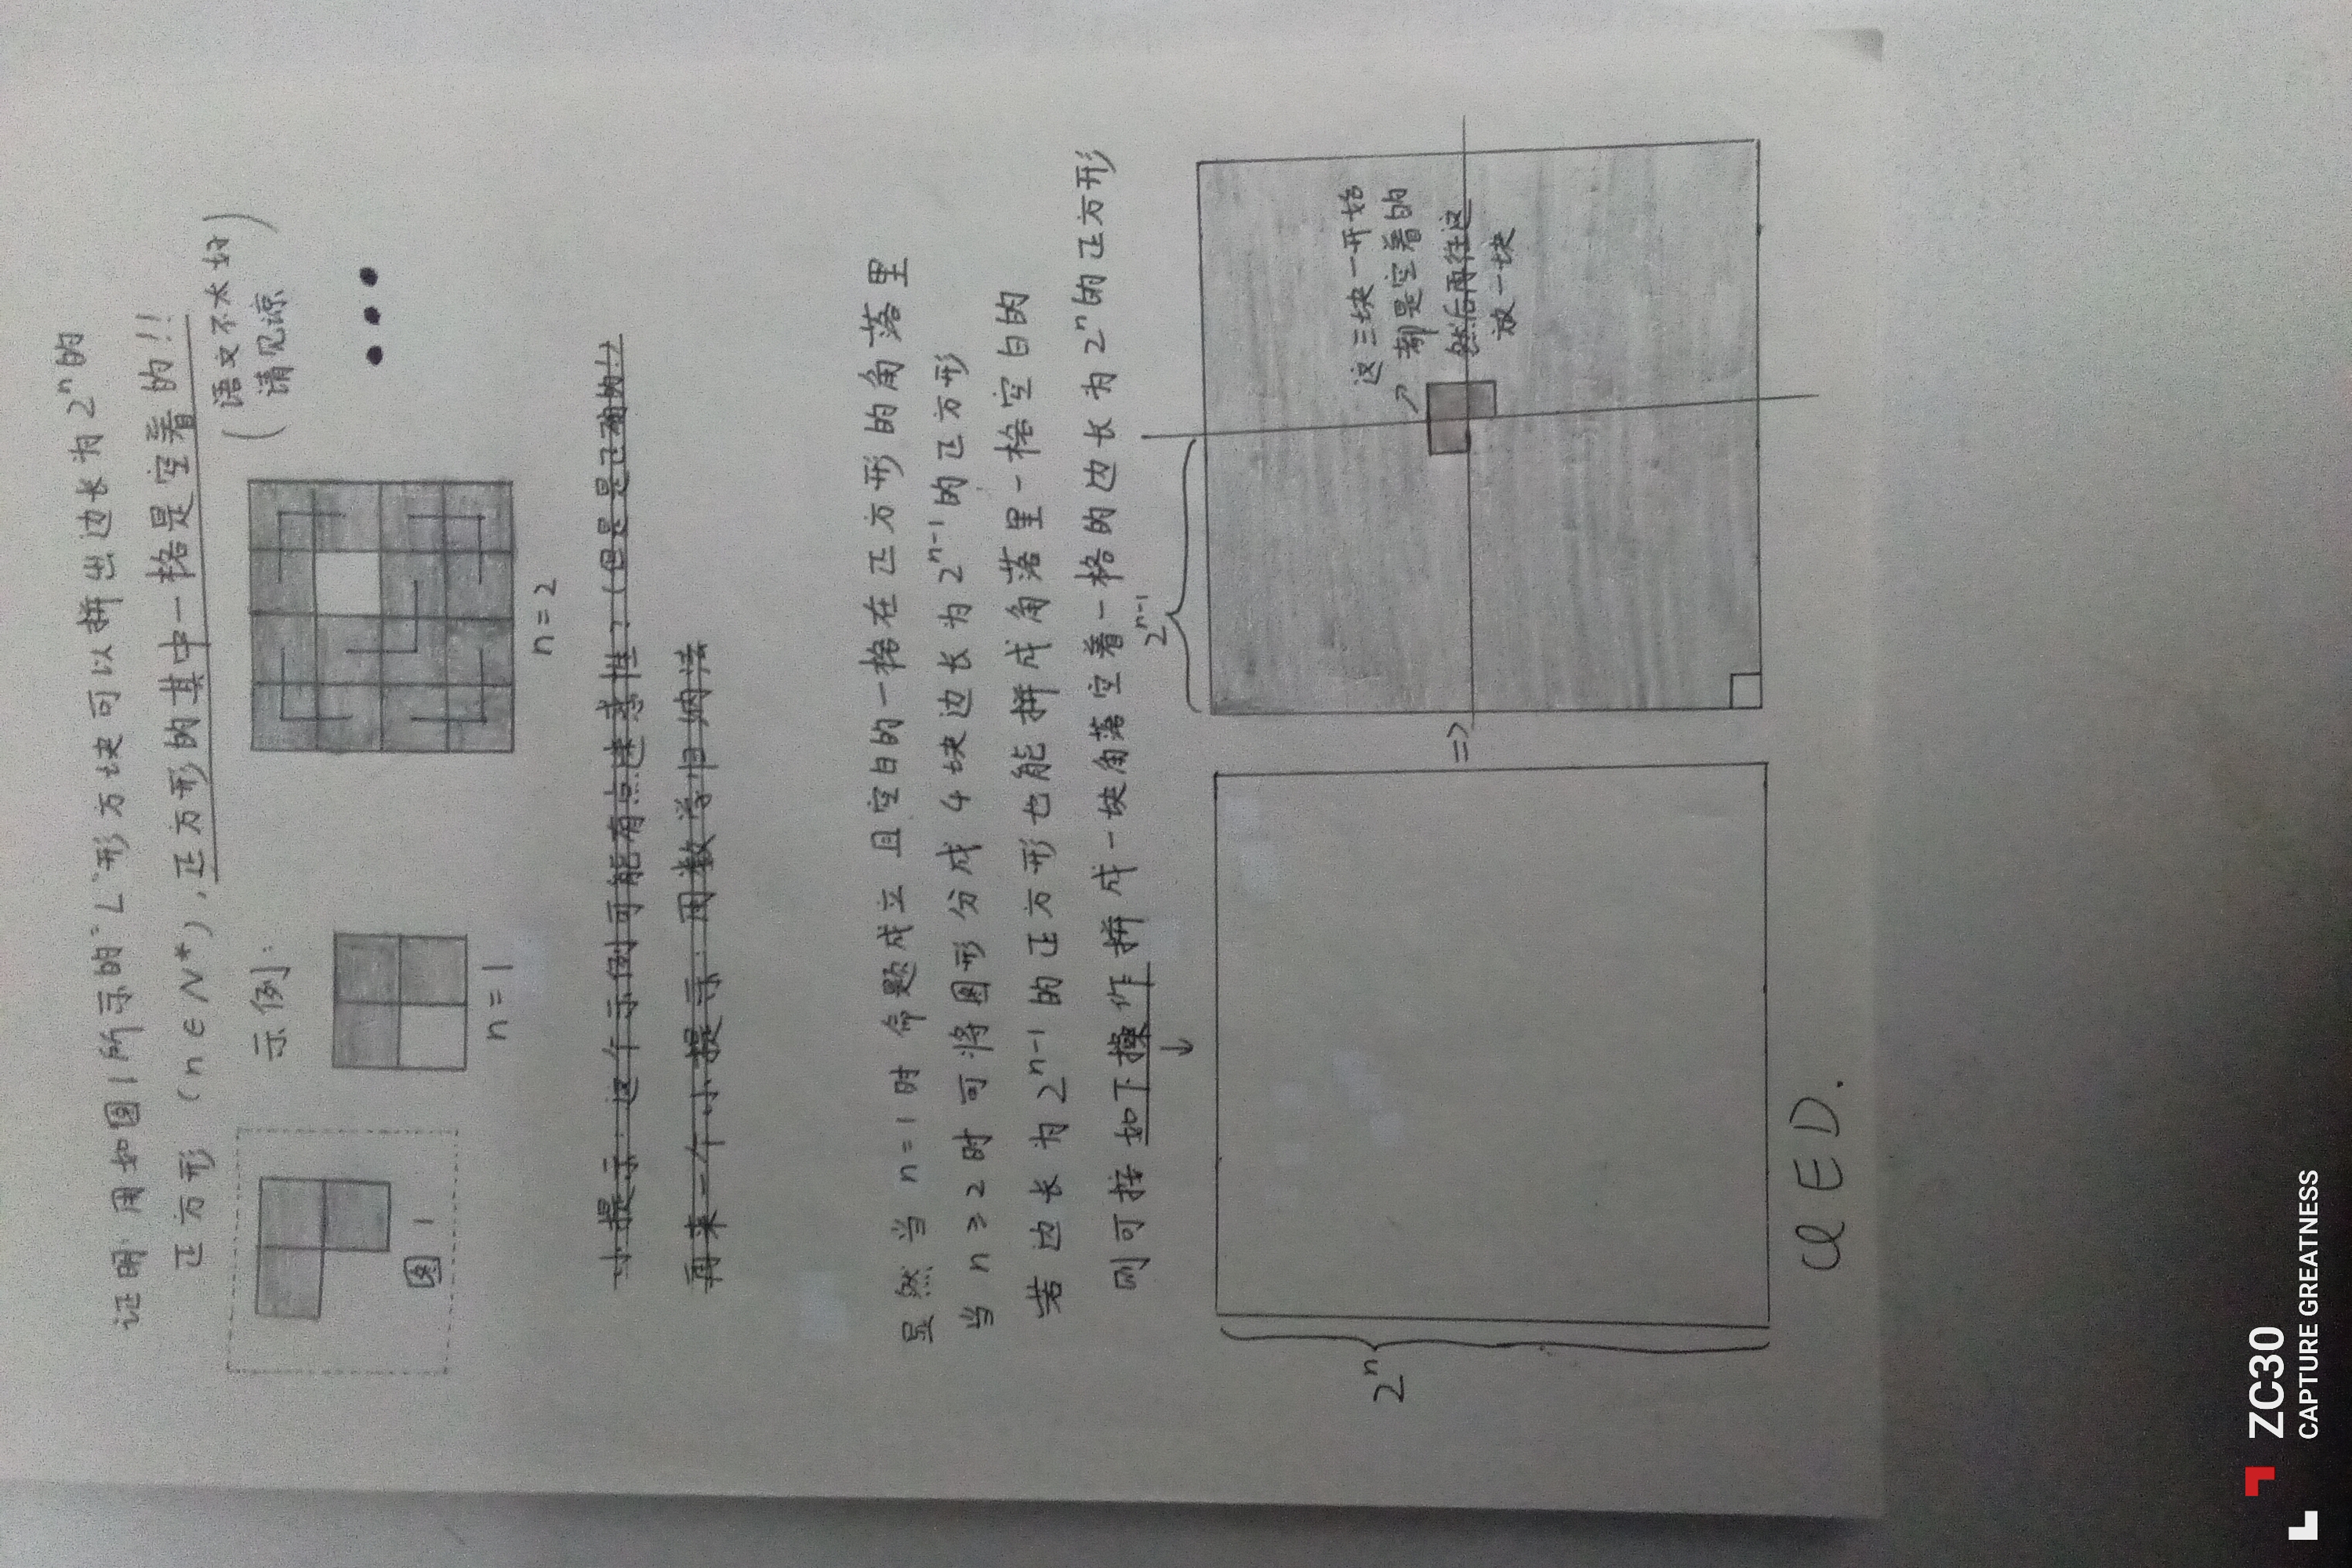 证明:用如图1所示的"L"形方块可以拼出边长为2ⁿ的
正方形 (n∈N*),正方形的其中一格是空着的!!
(语文不太好
请见谅)
示例:
图1
n=1
n=2
小提示:这个示例可能有点迷惑性?(但是是正确的!)
再来一个小提示:用数学归纳法
显然当n=1时 命题成立 且空白的一格在正方形的角落里
当n≥2时可将图形分成4块边长为2ⁿ⁻¹的正方形
若边长为2ⁿ⁻¹的正方形也能拼成角落里一格空白的
则可按如下操作拼成一块角落空着一格的边长为2ⁿ的正方形
↓
2ⁿ
=>
2ⁿ⁻¹
这三块一开始
都是空着的
然后再往这
放一块
QED.
ZC30
CAPTURE GREATNESS